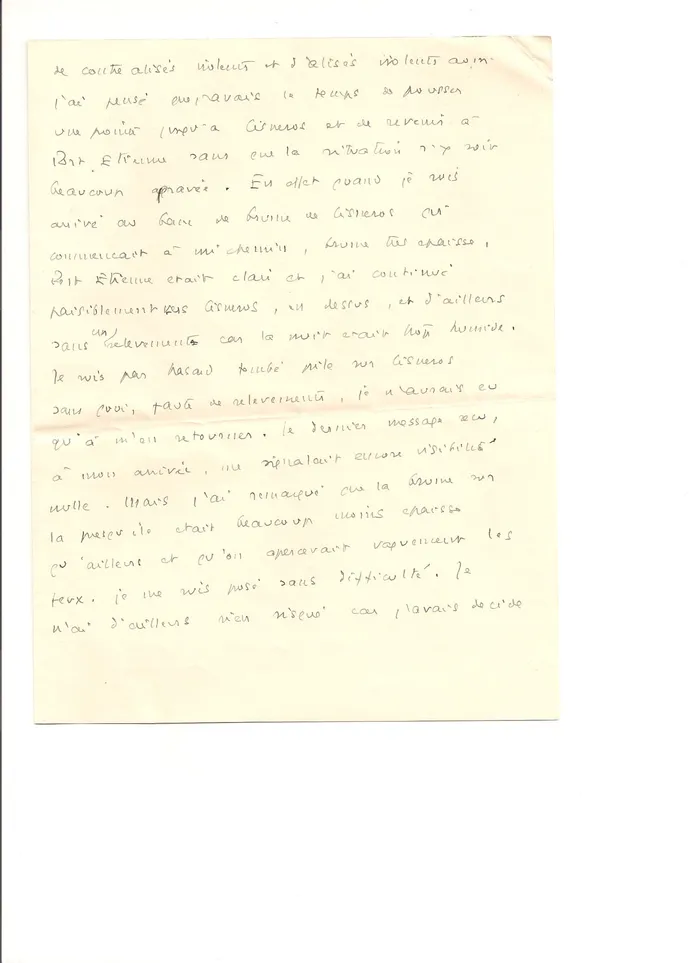 de contre alisés violents et d'alisés violents
j'ai pensé que j'avais le temps de pousser
une pointe jusqu'à Cisneros et de revenir à
Port Etienne sans que la situation s'y soit
beaucoup agravée. En effet quand je suis
arrivé au banc de brume de Cisneros qui
commençait à mi chemin, brume très épaisse,
Port Etienne était clair et j'ai continué
paisiblement vers Cisneros, en dessus, et d'ailleurs
sans un relevement car la nuit était trop humide.
Je suis par hasard tombé pile sur Cisneros
sans quoi, faute de relevements, je n'aurais eu
qu'à m'en retourner. Le dernier message reçu,
à mon arrivée, me signalait encore visibilité
nulle. Mais j'ai remarqué que la brume sur
la presqu'ile était beaucoup moins épaisse
qu'ailleurs et qu'on apercevait vaguement les
feux. Je me suis posé sans difficulté. Je
n'ai d'ailleurs rien risqué car j'avais décidé